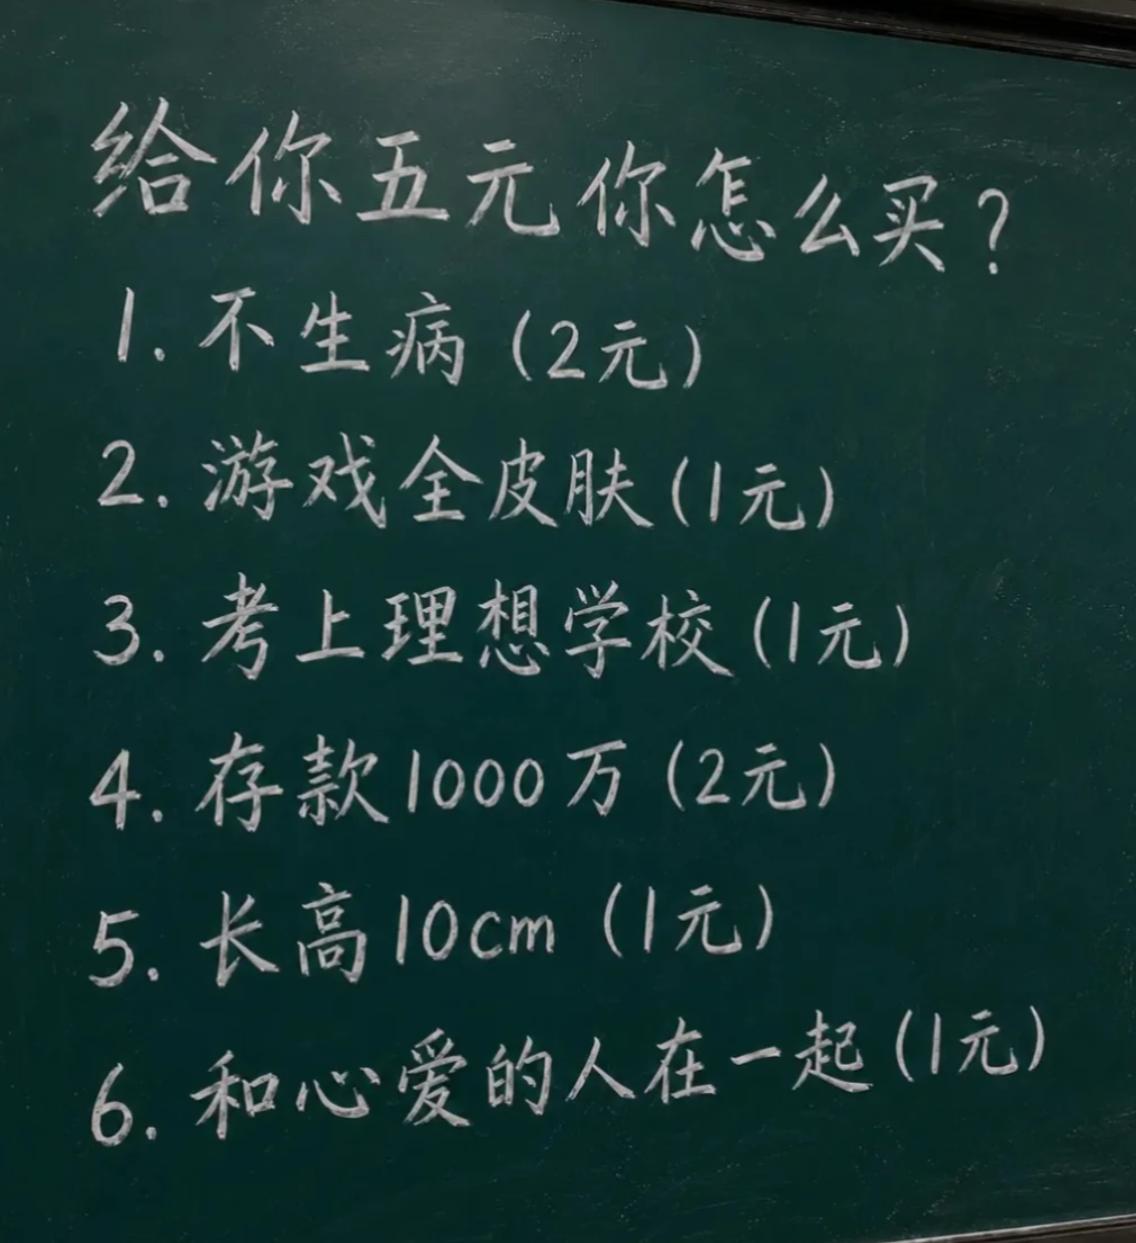 给你五元你怎么买？
1. 不生病（2元）
2. 游戏全皮肤（1元）
3. 考上理想学校（1元）
4. 存款1000万（2元）
5. 长高10cm（1元）
6. 和心爱的人在一起（1元）